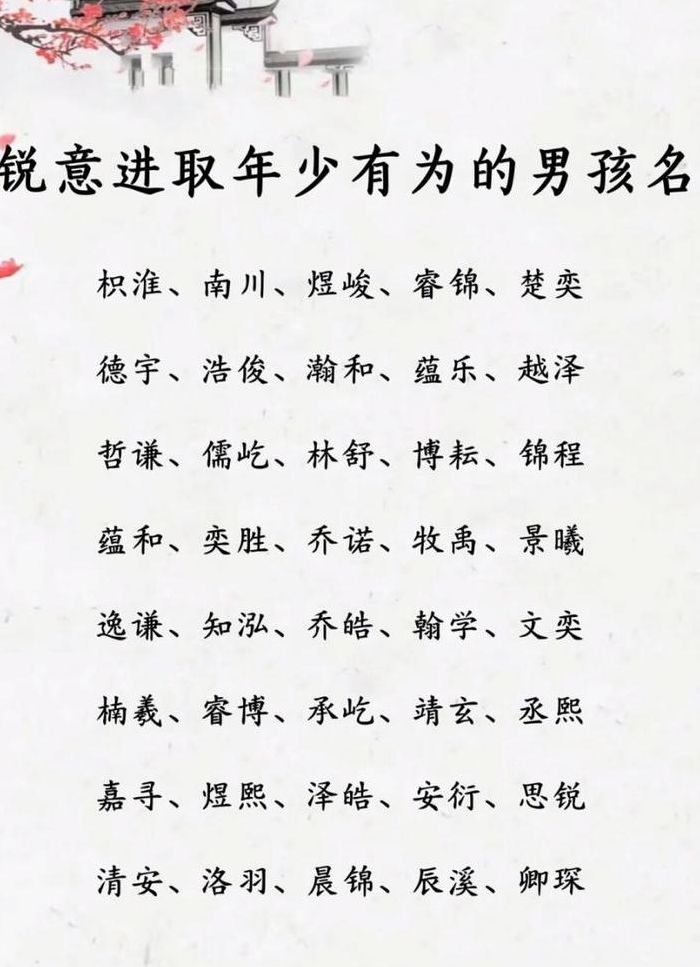 锐意进取年少有为的男孩名
枳淮、南川、煜峻、睿锦、楚奕
德宇、浩俊、瀚和、蕴乐、越泽
哲谦、儒屹、林舒、博耘、锦程
蕴和、奕胜、乔诺、牧禹、景曦
逸谦、知泓、乔皓、翰学、文奕
楠羲、睿博、承屹、靖玄、丞熙
嘉寻、煜熙、泽皓、安衍、思锐
清安、洛羽、晨锦、辰溪、卿琛